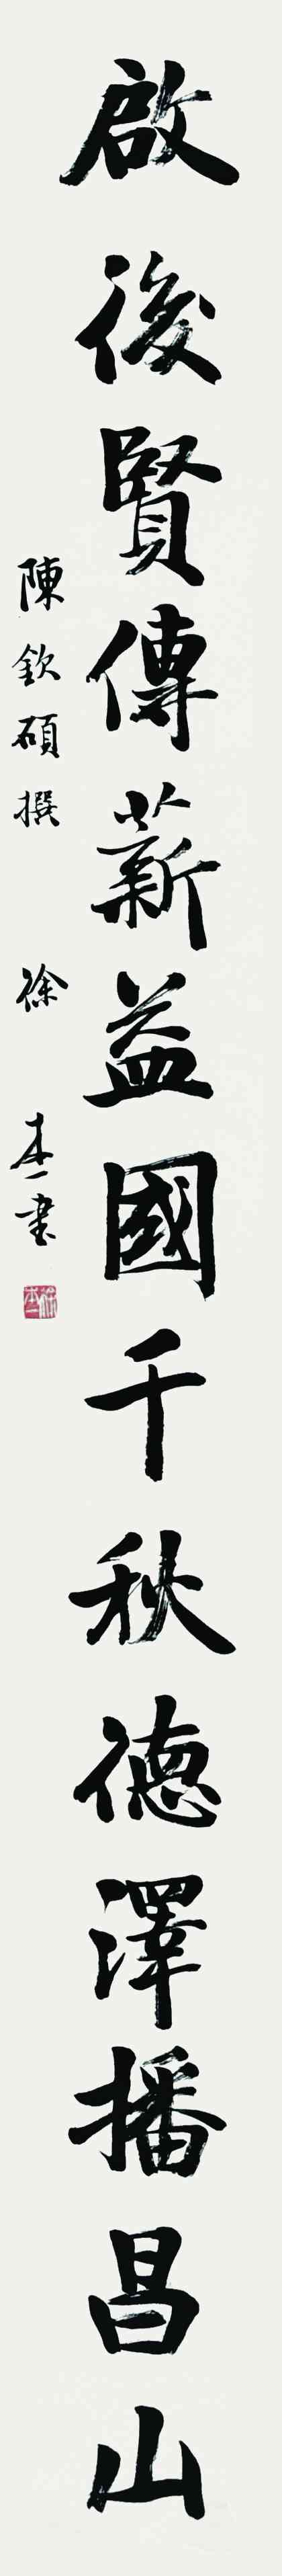 啟後賢傳薪益國千秋德澤播昌山
陳欽碩撰 徐本一書
徐本一